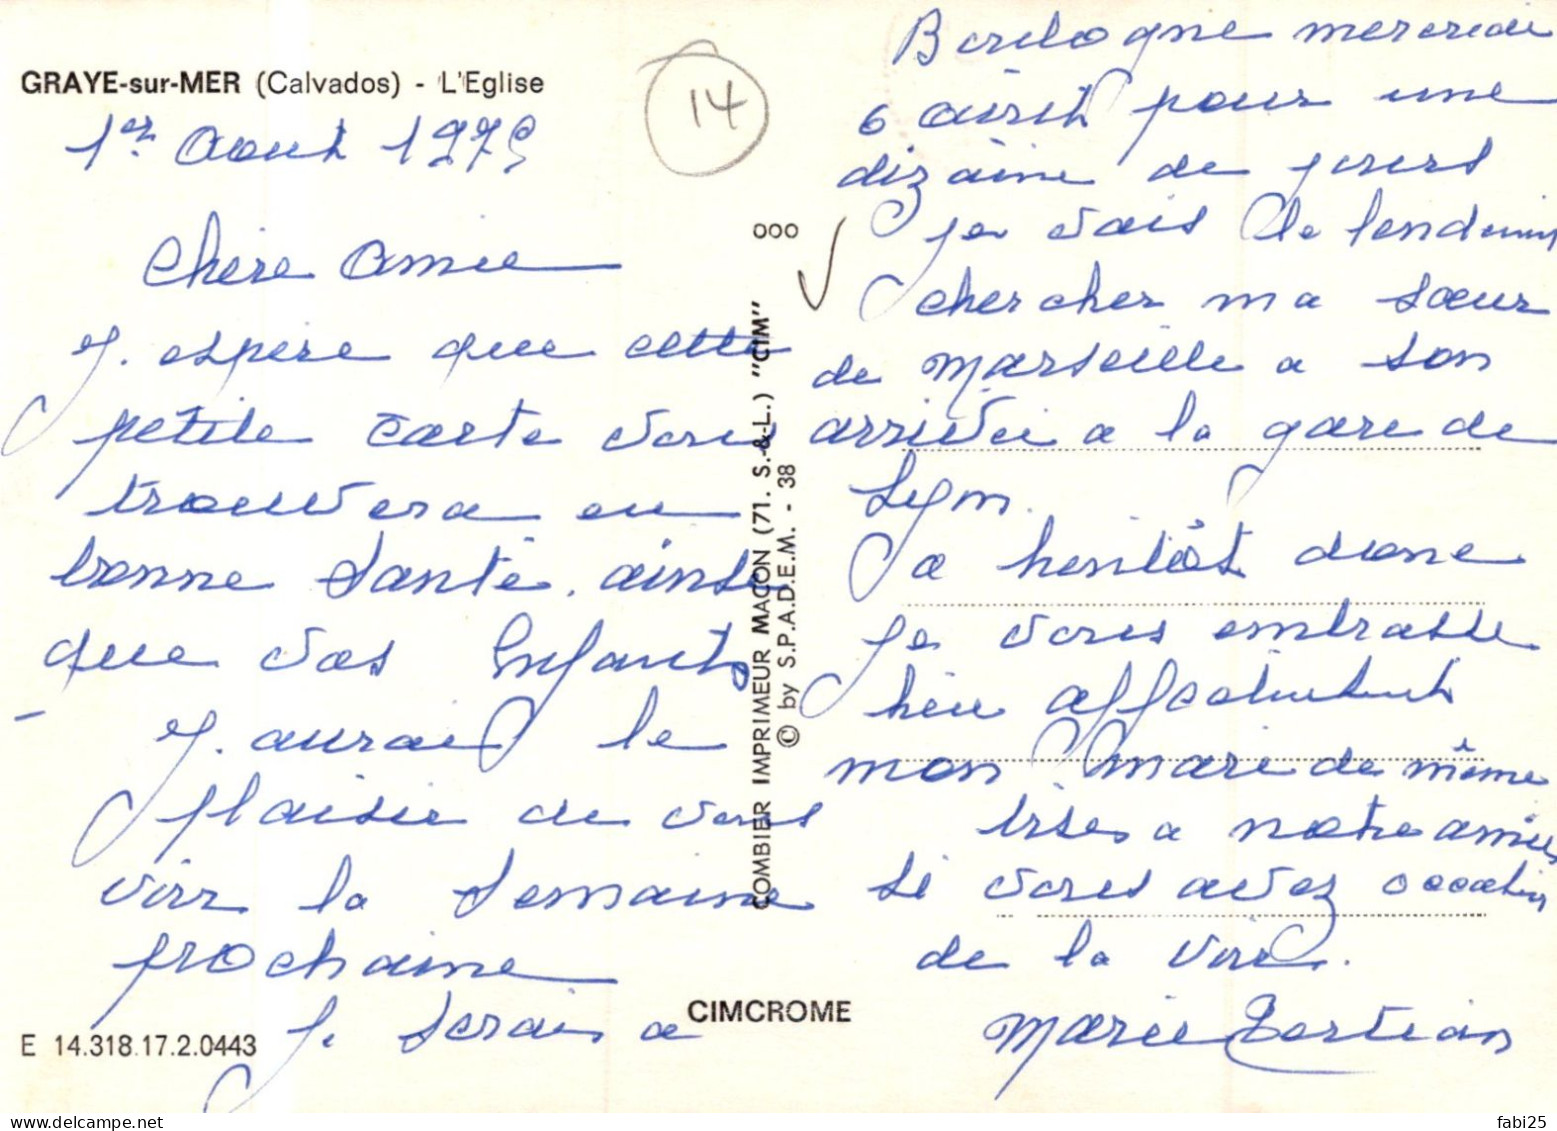 GRAYE-sur-MER (Calvados) - L'Eglise
1er Aout 1979
14
chère Amie
J. espere que cette
petite carte vous
trouvera en
bonne santé. ainsi
que vos Enfants
J. aurai le
plaisir de vous
voir la semaine
prochaine
Je serai a
E 14.318.17.2.0443
000
COMBIER IMPRIMEUR MACON (71. S.-&-L.) "CIM"
© by S.P.A.D.E.M. - 38
CIMCROME
Boulogne mercredi
6 aout pour une
dizaine de jours
je vais le lendemain
chercher ma soeur
de Marseille a son
arrivée a la gare de
Lyon.
a bientôt donc
je vous embrasse
bien affectueusement
mon mari de même
bises a notre amie
si vous avez occasion
de la voir.
Marie
fabi25